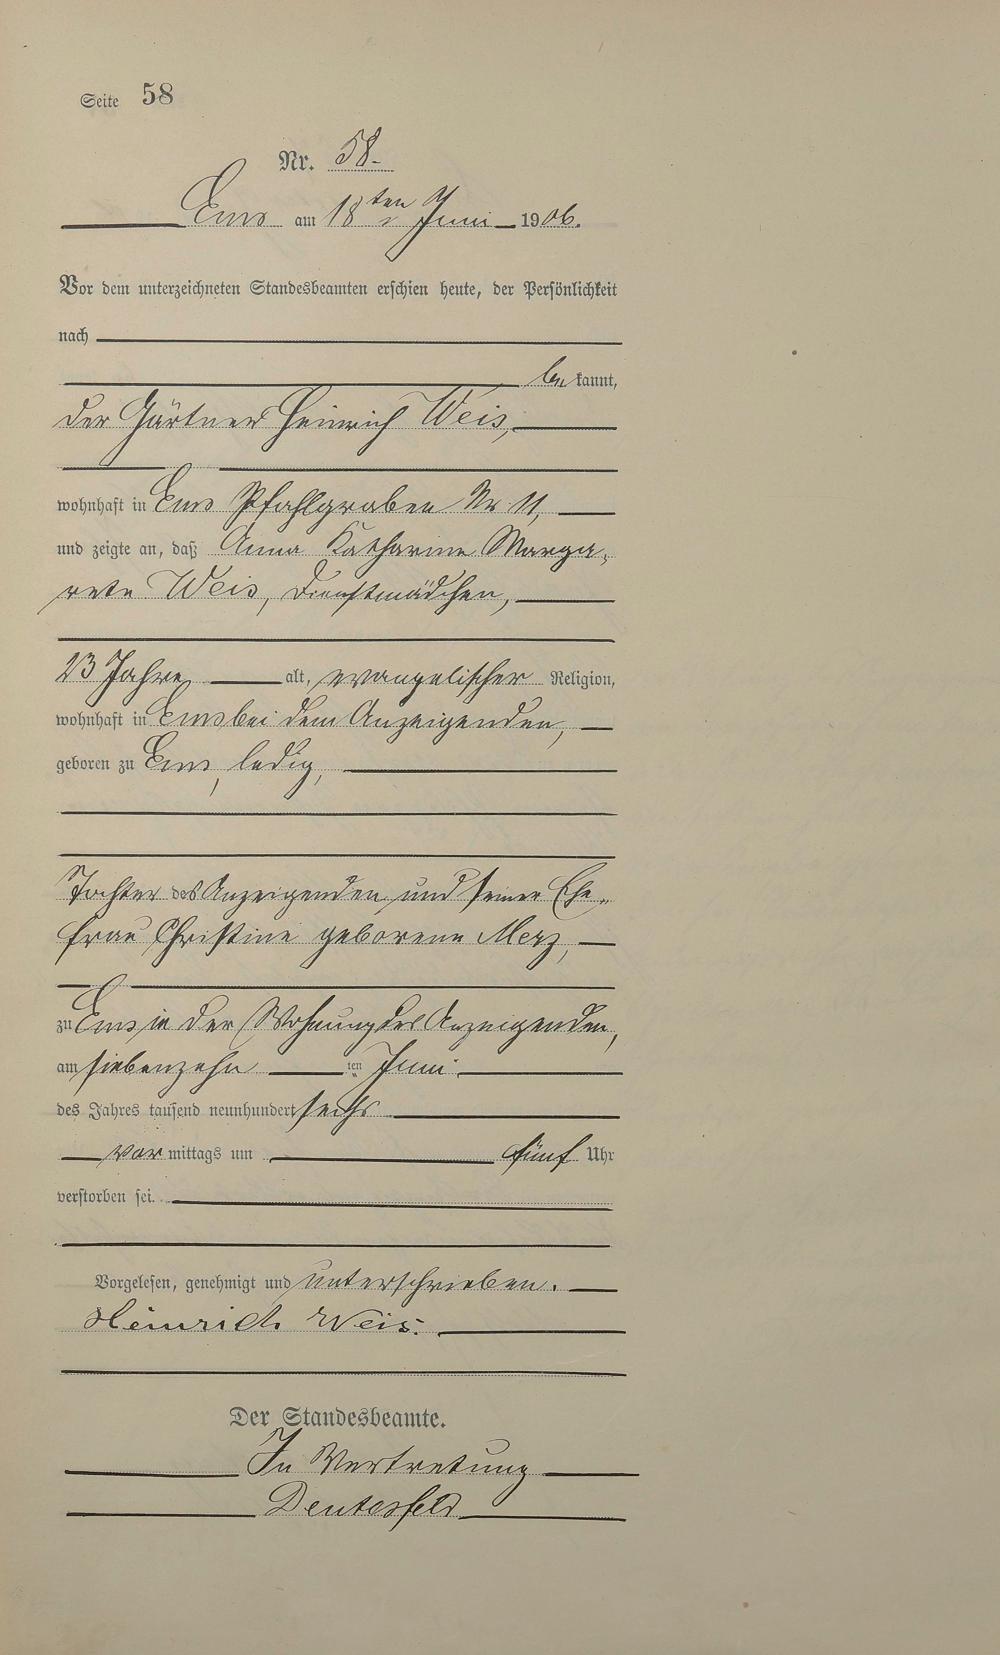 Seite 58
Nr. 58.
Ems am 18ten Juni 1906.
Vor dem unterzeichneten Standesbeamten erschien heute, der Persönlichkeit
nach
bekannt,
der Gärtner Heinrich Weis,
wohnhaft in Ems Pfahlgraben Nr 11,
und zeigte an, daß Anna Katharine Marga-
rete Weis, Dienstmädchen,
23 Jahre alt, evangelischer Religion,
wohnhaft in Ems bei dem Anzeigenden,
geboren zu Ems, ledig,
Tochter des Anzeigenden und seiner Ehe-
frau Christine geborene Merz,
zu Ems in der Wohnung des Anzeigenden,
am siebenzehnten Juni
des Jahres tausend neunhundert sechs
vormittags um fünf Uhr
verstorben sei.
Vorgelesen, genehmigt und unterschrieben.
Heinrich Weis.
Der Standesbeamte.
In Vertretung